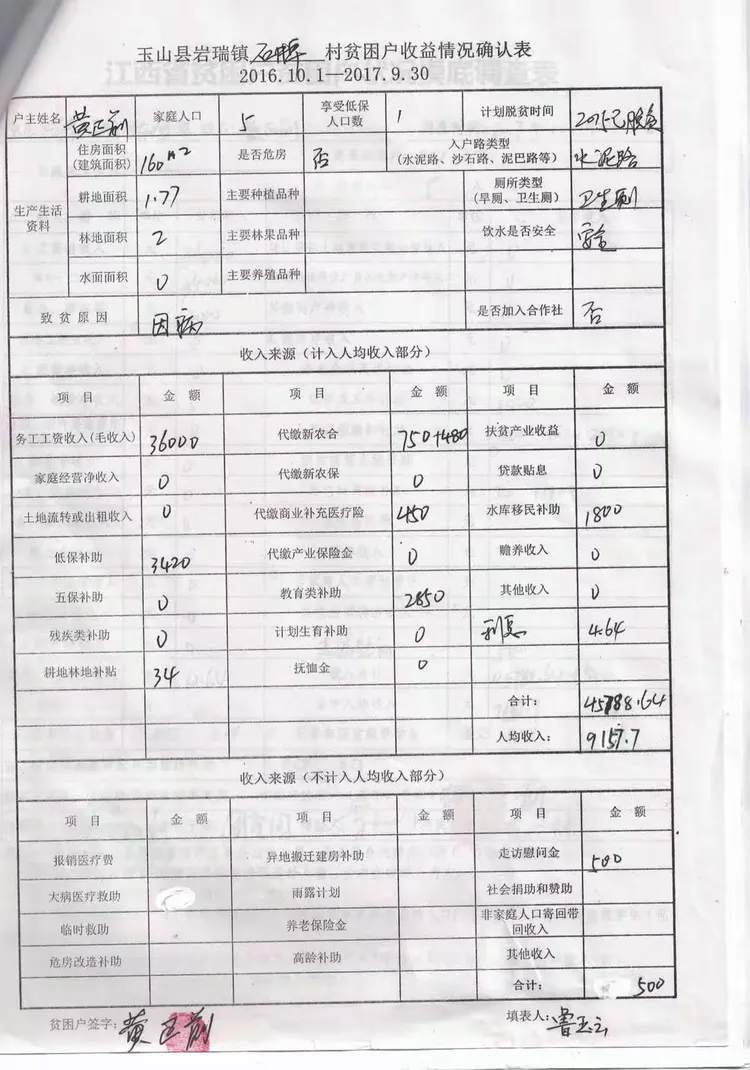 玉山县岩瑞镇 村贫困户收益情况确认表
2016.10.1—2017.9.30
户主姓名 家庭人口 5 享受低保人口数 1 计划脱贫时间
生产生活资料
住房面积(建筑面积) 160m2 是否危房 否 入户路类型(水泥路、沙石路、泥巴路等) 水泥路
耕地面积 1.77 主要种植品种 厕所类型(旱厕、卫生厕) 卫生厕
林地面积 2 主要林果品种 饮水是否安全 安全
水面面积 0 主要养殖品种
致贫原因 因病 是否加入合作社 否
收入来源（计入人均收入部分）
项 目 金 额 项 目 金 额 项 目 金 额
务工工资收入(毛收入) 36000 代缴新农合 750+480 扶贫产业收益 0
家庭经营净收入 0 代缴新农保 0 贷款贴息 0
土地流转或出租收入 0 代缴商业补充医疗险 450 水库移民补助 1800
低保补助 3420 代缴产业保险金 0 赡养收入 0
五保补助 0 教育类补助 2850 其他收入 0
残疾类补助 0 计划生育补助 0 利息 4.64
耕地林地补贴 34 抚恤金 0
合计： 45788.64
人均收入： 9157.7
收入来源（不计入人均收入部分）
项 目 金 额 项 目 金 额 项 目 金 额
报销医疗费 异地搬迁建房补助 走访慰问金 500
大病医疗救助 雨露计划 社会捐助和赞助
临时救助 养老保险金 非家庭人口寄回带回收入
危房改造补助 高龄补助 其他收入
合计： 500
贫困户签字： 填表人：